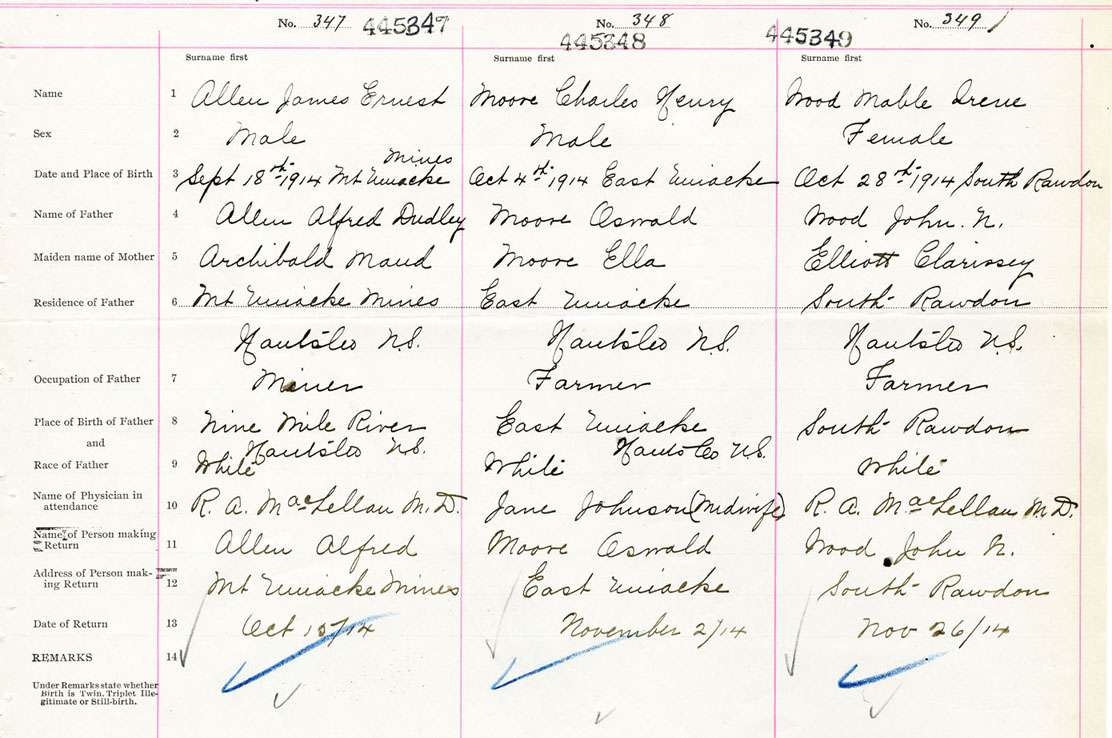 No. 347 445347 No. 348 445348 No. 349 445349
Surname first Surname first Surname first
Name 1 Allen James Ernest Moore Charles Henry Wood Mable Irene
Sex 2 Male Male Female
Mines
Date and Place of Birth 3 Sept 18th 1914 Mt Uniacke Oct 4th 1914 East Uniacke Oct 28th 1914 South Rawdon
Name of Father 4 Allen Alfred Dudley Moore Oswald Wood John. N.
Maiden name of Mother 5 Archibald Maud Moore Ella Elliott Clarissey
Residence of Father 6 Mt Uniacke Mines East Uniacke South Rawdon
Hants Co N.S. Hants Co N.S. Hants Co N.S.
Occupation of Father 7 Miner Farmer Farmer
Place of Birth of Father 8 Nine Mile River East Uniacke South Rawdon
and Hants Co N.S. Hants Co N.S.
Race of Father 9 White White White
Name of Physician in
attendance 10 R. A. MacLellan M.D. Jane Johnson (Midwife) R. A. MacLellan M.D.
Name of Person making
Return 11 Allen Alfred Moore Oswald Wood John N.
Address of Person mak-
ing Return 12 Mt Uniacke Mines East Uniacke South Rawdon
Date of Return 13 Oct 15/14 November 2/14 Nov 26/14
REMARKS 14
Under Remarks state whether
Birth is Twin. Triplet Ille-
gitimate or Still-birth.